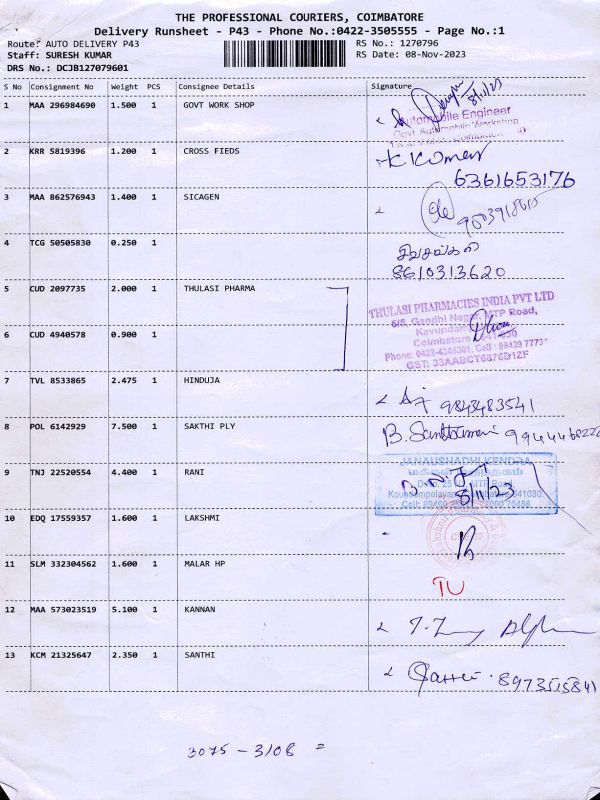 THE PROFESSIONAL COURIERS, COIMBATORE
Delivery Runsheet - P43 - Phone No.:0422-3505555 - Page No.:1
Route: AUTO DELIVERY P43 RS No.: 1270796
Staff: SURESH KUMAR RS Date: 08-Nov-2023
DRS No.: DCJB127079601
S No Consignment No Weight PCS Consignee Details Signature
1 MAA 296984690 1.500 1 GOVT WORK SHOP
8/11/23
Automobile Engineer
Govt Automobile Workshop
2 KRR 5819396 1.200 1 CROSS FIEDS K Kumar
6361653176
3 MAA 862576943 1.400 1 SICAGEN
4 TCG 50505830 0.250 1
8610313620
5 CUD 2097735 2.000 1 THULASI PHARMA
THULASI PHARMACIES INDIA PVT LTD
5/5, Gandhi Nagar, MTP Road,
Coimbatore
6 CUD 4940578 0.900 1
Phone: 0422-4346301, Cell: 98439 77731
GST: 33AABCT6676D1ZF
7 TVL 8533865 2.475 1 HINDUJA 9843483541
8 POL 6142929 7.500 1 SAKTHI PLY B.
JANAUSHADHI KENDRA
மக்கள் மருந்தகம்
9 TNJ 22520554 4.400 1 RANI 8/11/23
MTP Road,
641030.
10 EDQ 17559357 1.600 1 LAKSHMI
11 SLM 332304562 1.600 1 MALAR HP TU
12 MAA 573023519 5.100 1 KANNAN
13 KCM 21325647 2.350 1 SANTHI
3075 - 3108 =